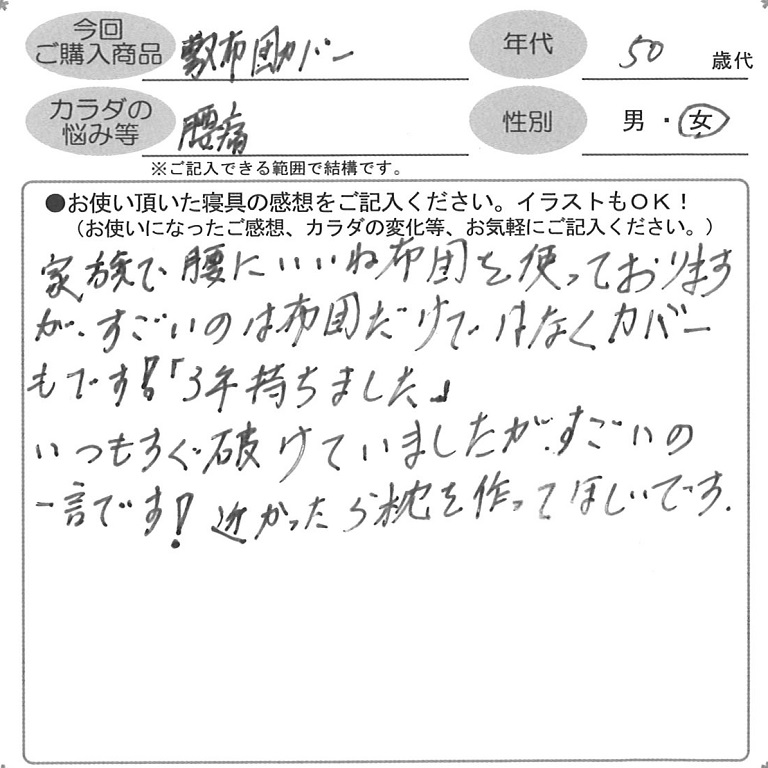 今回
ご購入商品
敷布団カバー
年代
50
歳代
カラダの
悩み等
腰痛
性別
男・女
※ご記入できる範囲で結構です。
●お使い頂いた寝具の感想をご記入ください。イラストもOK！
（お使いになったご感想、カラダの変化等、お気軽にご記入ください。）
家族で腰にいいね布団を使っております
が、すごいのは布団だけではなくカバー
もです!「3年持ちました」
いつもすぐ破けていましたが、すごいの
一言です! 近かったら枕を作ってほしいです.